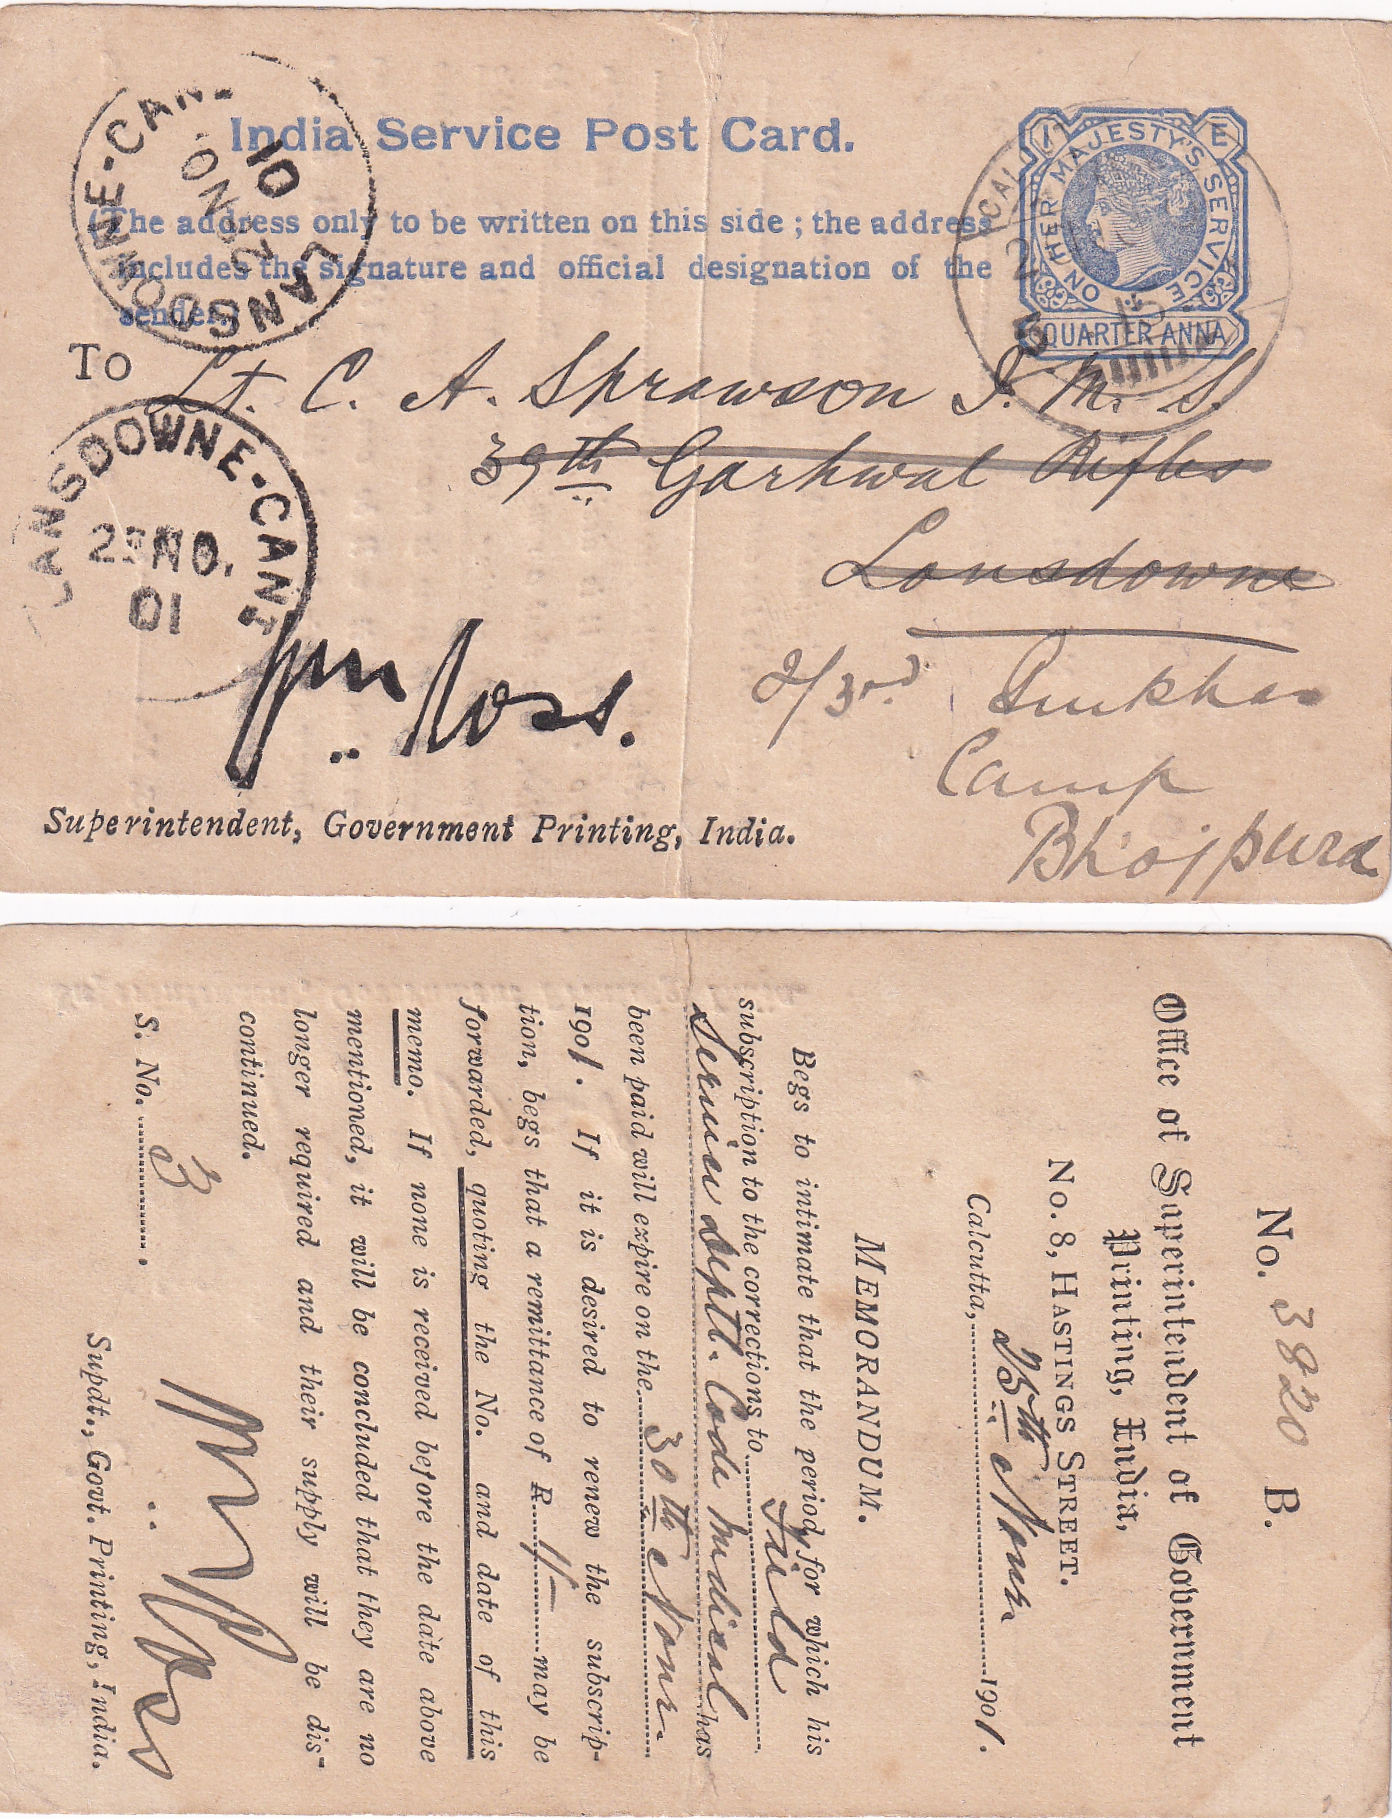 India Service Post Card.
(The address only to be written on this side ; the address
includes the signature and official designation of the
sender.)
ON HER MAJESTY'S SERVICE
QUARTER ANNA
LANSDOWNE-CANT
NO.
01
TO
Lt. C. A. Sprawson I. M. S.
39th Garhwal Rifles
Lansdowne
LANSDOWNE-CANT
NO.
01
2/3rd Gurkhas
Camp
Bhojpura
Wm Ross.
Superintendent, Government Printing, India.
No. 3820 B.
Office of Superintendent of Government
Printing, India,
No. 8, HASTINGS STREET.
Calcutta, 25th Novr. 1901.
MEMORANDUM.
Begs to intimate that the period, for which his
subscription to the corrections to Field
Service Deptl. Code Medical has
been paid will expire on the 30th Novr.
1901. If it is desired to renew the subscrip-
tion, begs that a remittance of R 1/- may be
forwarded, quoting the No. and date of this
memo. If none is received before the date above
mentioned, it will be concluded that they are no
longer required and their supply will be dis-
continued.
S. No. 3 .
Wm Ross
Supdt., Govt. Printing, India.